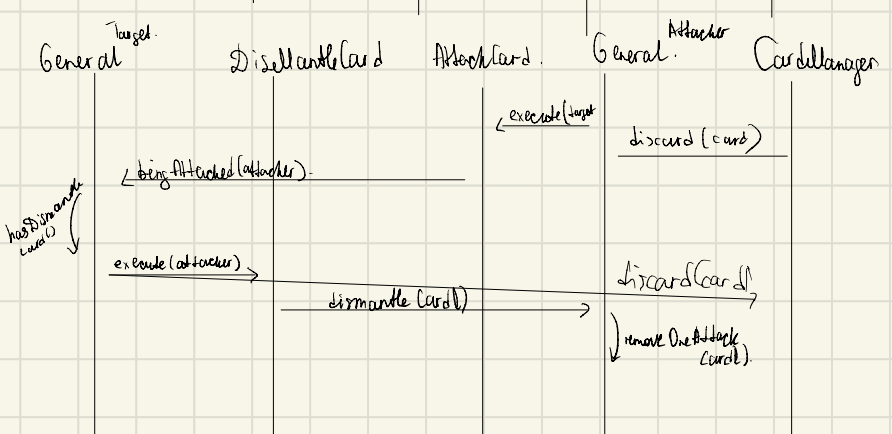 Target.
Attacker
General
DismantleCard
AttackCard.
General.
CardManager
execute(target
discard(card)
beingAttacked(attacker).
hasDismantle
Card()
execute(attacker)
discard(card)
dismantle Card()
remove One Attack
Card().